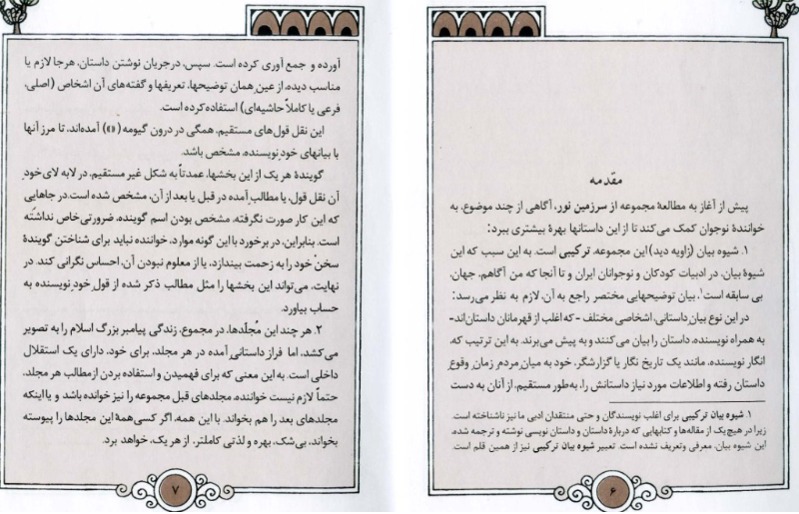 مقدّمه
پیش از آغاز به مطالعهٔ مجموعه از سرزمین نور، آگاهی از چند موضوع، به
خوانندهٔ نوجوان کمک می‌کند تا از این داستانها بهرهٔ بیشتری ببرد:
۱. شیوه بیان (زاویه دید) این مجموعه، ترکیبی است. به این سبب که این
شیوهٔ بیان، در ادبیات کودکان و نوجوانان ایران و تا آنجا که من آگاهم، جهان،
بی سابقه است۱، بیان توضیحهایی مختصر راجع به آن، لازم به نظر می‌رسد:
در این نوع بیان داستانی، اشخاصی مختلف -که اغلب از قهرمانان داستان‌اند-
به همراه نویسنده، داستان را بیان می‌کنند و به پیش می‌برند. به این ترتیب که،
انگار نویسنده، مانند یک تاریخ نگار یا گزارشگر، خود به میان مردم زمان وقوع
داستان رفته و اطلاعات مورد نیاز داستانش را، به‌طور مستقیم، از آنان به دست
۱. شیوه بیان ترکیبی برای اغلب نویسندگان و حتی منتقدان ادبی ما نیز ناشناخته است.
زیرا در هیچ‌یک از مقاله‌ها و کتابهایی که دربارهٔ داستان و داستان نویسی نوشته و ترجمه شده،
این شیوه بیان، معرفی وتعریف نشده است. تعبیر شیوه بیان ترکیبی نیز از همین قلم است.
۶
آورده و جمع آوری کرده است. سپس، درجریان نوشتن داستان، هرجا لازم یا
مناسب دیده، از عین همان توضیحها، تعریفها و گفته‌های آن اشخاص (اصلی،
فرعی یا کاملاً حاشیه‌ای) استفاده‌کرده است.
این نقل قول‌های مستقیم، همگی در درون گیومه (« ») آمده‌اند، تا مرز آنها
با بیانهای خود نویسنده، مشخص باشد.
گویندهٔ هر یک از این بخشها، عمدتاً به شکل غیر مستقیم، در لابه لای خود
آن نقل قول، یا مطالب آمده در قبل یا بعد از آن، مشخص شده است. در جاهایی
که این کار صورت نگرفته، مشخص بودن اسم گوینده، ضرورتی خاص نداشته
است. بنابراین، در برخورد با این گونه موارد، خواننده نباید برای شناختن گویندهٔ
سخن خود را به زحمت بیندازد، یا از معلوم نبودن آن، احساس نگرانی کند. در
نهایت، می‌تواند این بخشها را مثل مطالب ذکر شده از قول خود نویسنده به
حساب بیاورد.
۲. هر چند این مجلدها، در مجموع، زندگی پیامبر بزرگ اسلام را به تصویر
می‌کشد، اما فراز داستانی آمده در هر مجلد، برای خود، دارای یک استقلال
داخلی است. به این معنی که برای فهمیدن و استفاده بردن ازمطالب هر مجلد،
حتماً لازم نیست خواننده، مجلدهای قبل مجموعه را نیز خوانده باشد و یا اینکه
مجلدهای بعد را هم بخواند. با این همه، اگر کسی همهٔ این مجلدها را پیوسته
بخواند، بی‌شک، بهره و لذتی کاملتر، از هر یک، خواهد برد.
۷